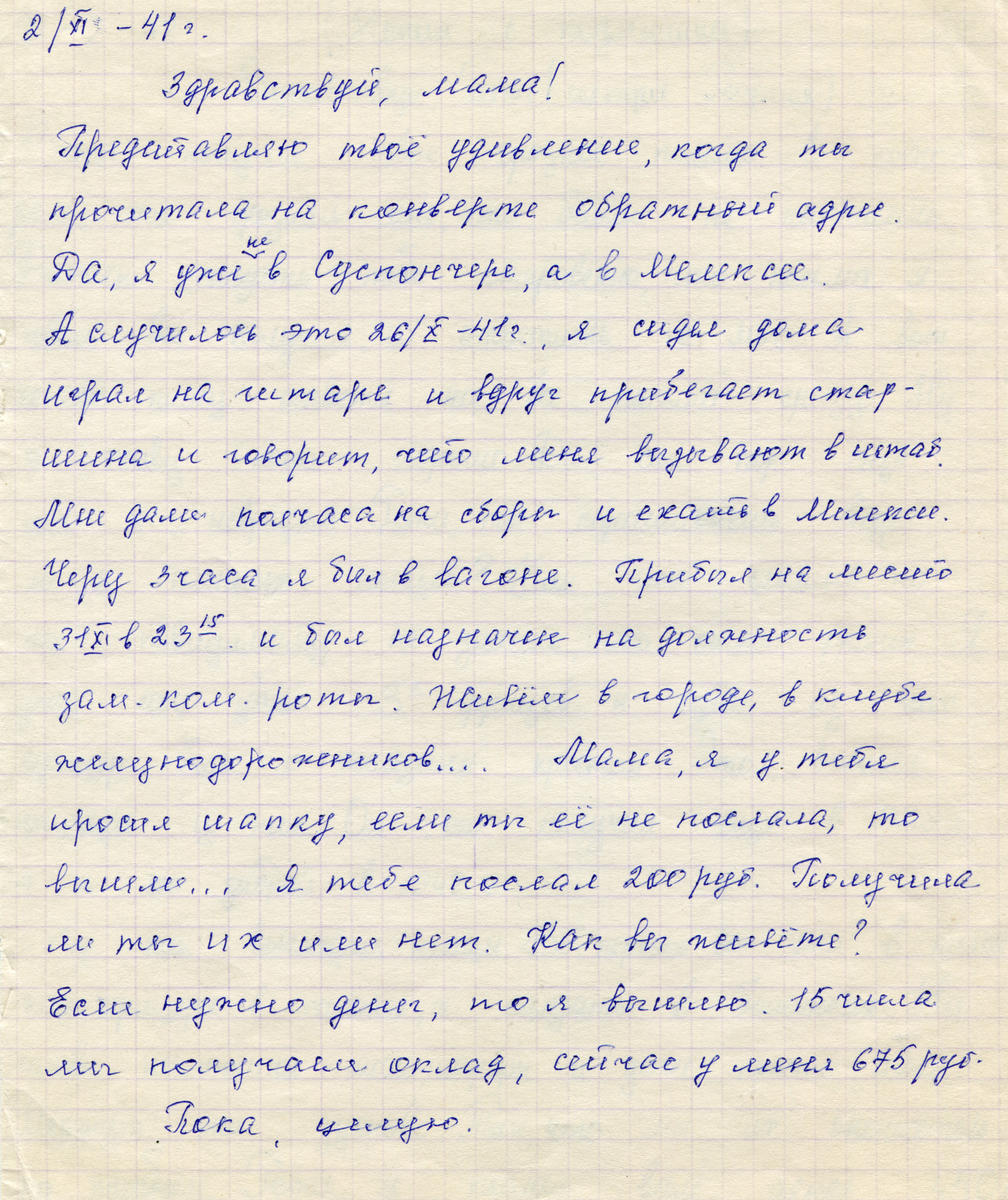 2/XI - 41 г.
Здравствуй, мама!
Представляю твоё удивление, когда ты
прочитала на конверте обратный адрес.
Да, я уже не в Суспончере, а в Мелексе.
А случилось это 26/X - 41 г., я сидел дома
играл на гитаре и вдруг прибегает стар-
шина и говорит, что меня вызывают в штаб.
Мне дали полчаса на сборы и ехать в Мелексе.
Через 3 часа я был в вагоне. Прибыл на место
31 XI в 23 15. и был назначен на должность
зам. ком. роты. Живём в городе, в клубе
железнодорожников.... Мама, я у тебя
просил шапку, если ты её не послала, то
вышли... Я тебе послал 200 руб. Получила
ли ты их или нет. Как вы живёте?
Если нужно денег, то я вышлю. 15 числа
мы получаем оклад, сейчас у меня 675 руб.
Пока, целую.